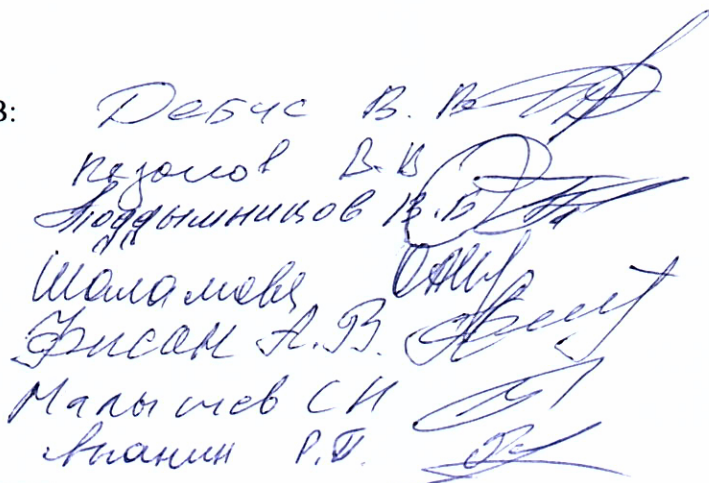 в:
Дебус В. В.
Казаков В.В
Поддымников В.Б
Шаламова
Фисан А.В.
Малышев СН
Ананин Р.П.